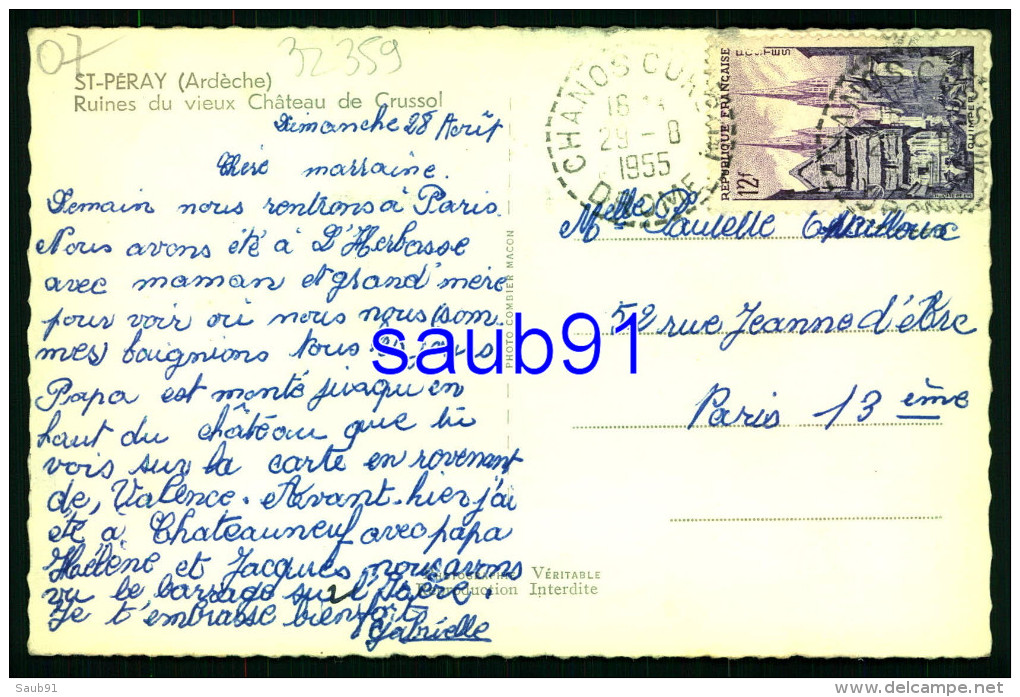 07
32359
ST-PÉRAY (Ardèche)
Ruines du vieux Château de Crussol
Dimanche 28 Août
Chère marraine.
Demain nous rentrons à Paris.
Nous avons été à D'Herbasse
avec maman et grand'mère
pour voir où nous nous (som
mes) baignions tous.
Papa est monté jusqu'en
haut du château que tu
vois sur la carte en revenant
de, Valence. Avant-hier j'ai
été à Chateauneuf avec papa
Hélène et Jacques nous avons
vu le barrage sur l'Isère.
Je t'embrasse bien fort
Gabrielle
PHOTO COMBIER MACON
PHOTOGRAPHIE VÉRITABLE
Reproduction Interdite
CHANOS CURSON
29-8
1955
DROME
REPUBLIQUE FRANÇAISE
POSTES
12f
QUIMPER
Melle Paulette
52 rue Jeanne d'Arc
Paris 13 ème
saub91
Saub91
www.delcampe.net